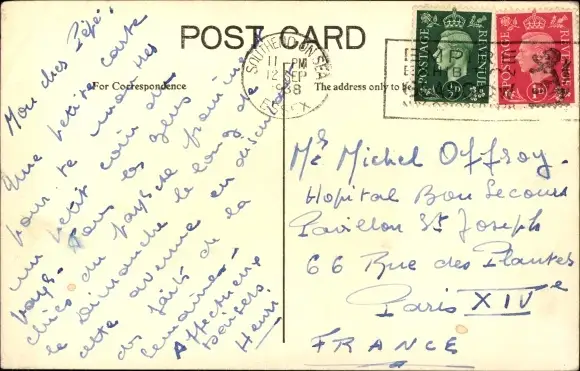 POST CARD
For Correspondence
The address only to be
SOUTHEND-ON-SEA
11 PM
12 SEP
1938
ESSEX
POSTAGE REVENUE
½D
POSTAGE REVENUE
1D
Mon cher Pépé!
Une petite carte
pour te montrer
un petit coin du
pays. Tous les gens
chics du pays se promènent
le Dimanche le long de
cette avenue en discutant
des faits de la
semaine.
Affectueux
baisers
Henri
Mr Michel Offroy.
Hopital Bon Secours
Pavillon St Joseph
66 Rue des Plantes
Paris XIVe
FRANCE